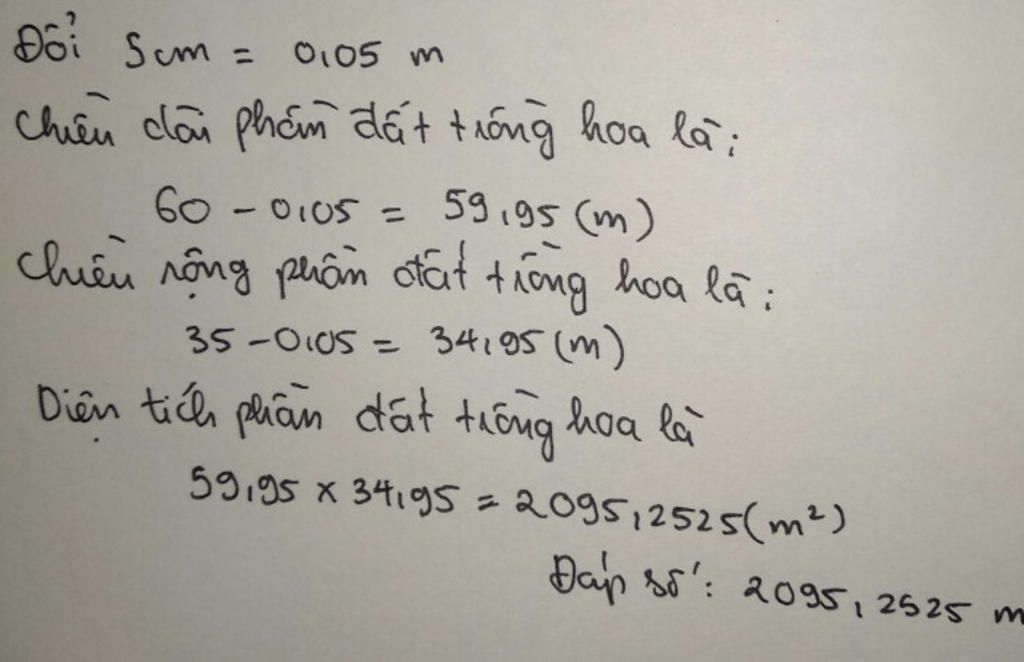 Đổi 5cm = 0,05 m
Chiều dài phần đất trồng hoa là:
60 - 0,05 = 59,95 (m)
Chiều rộng phần đất trồng hoa là:
35 - 0,05 = 34,95 (m)
Diện tích phần đất trồng hoa là
59,95 x 34,95 = 2095,2525 (m²)
Đáp số: 2095,2525 m